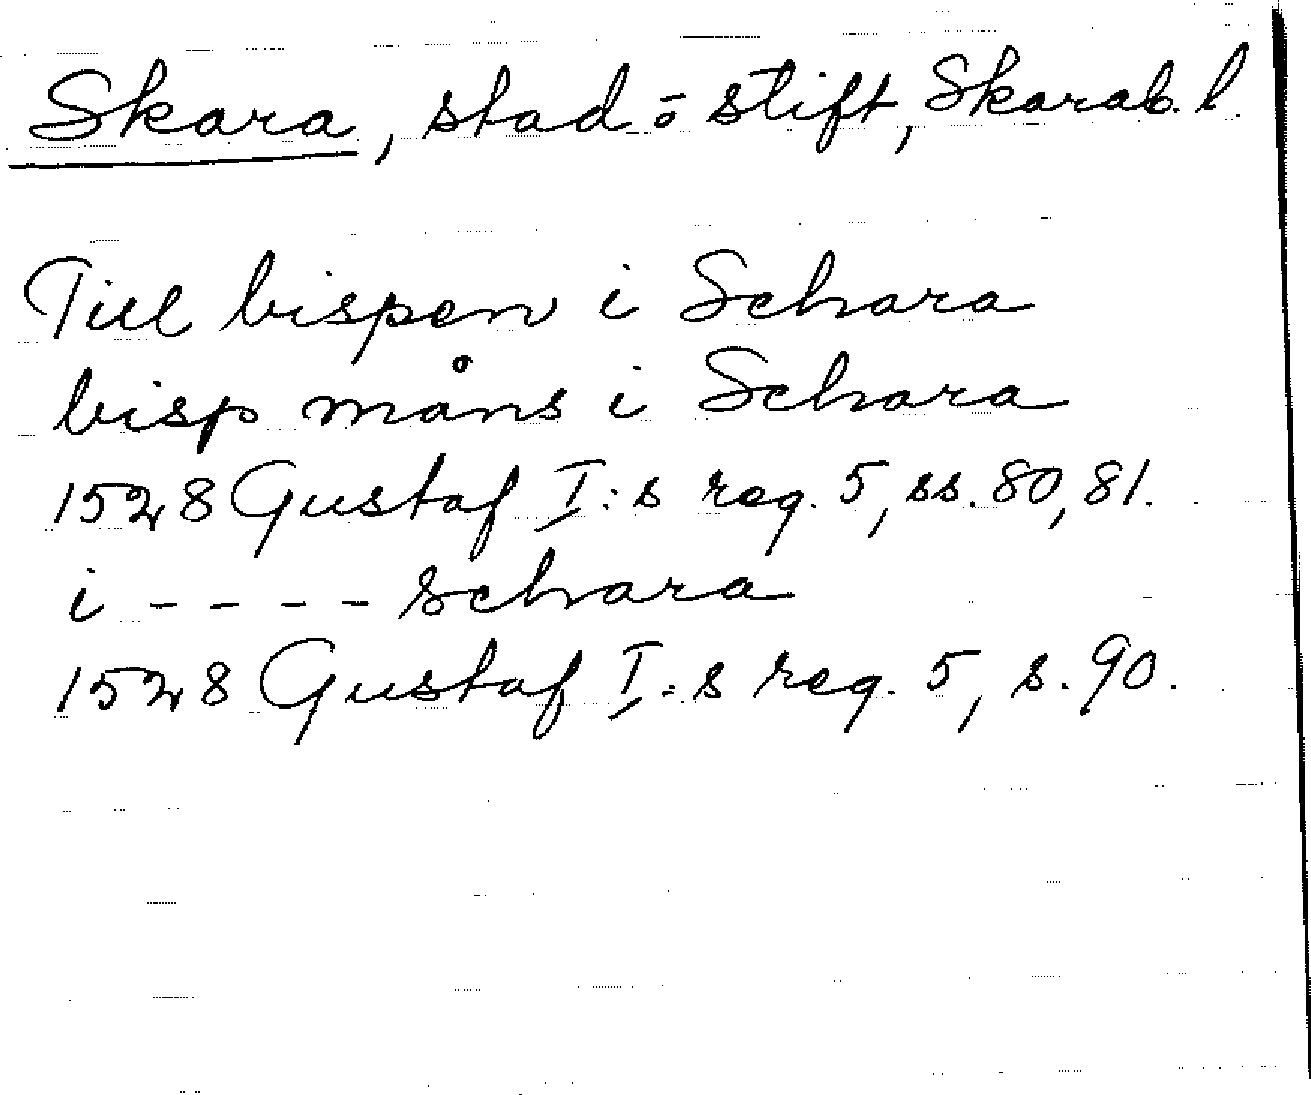 Skara, stad o stift, Skarab. l.
Till bispen i Schara
bisp måns i Schara
1528 Gustaf I:s reg. 5, ss. 80, 81.
i - - - - schara
1528 Gustaf I:s reg. 5, s. 90.